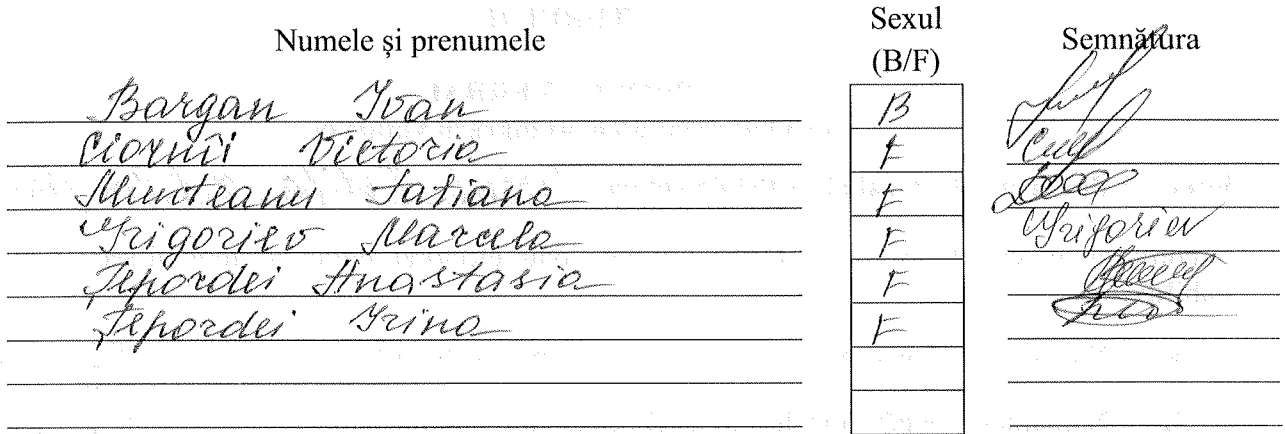 Numele și prenumele Sexul (B/F) Semnătura
Bargan Ivan B
Ciornîi Victoria F
Munteanu Tatiana F
Grigoriev Marcela F Grigoriev
Țepordei Anastasia F
Țepordei Irina F